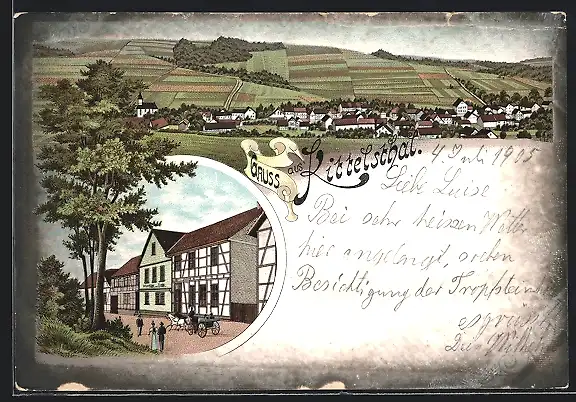 GRUSS aus Kittelsthal.
4. Juli 1905
Liebe Luise
Bei sehr heissem Wetter
hier angelangt,
Besichtigung der Tropfstein